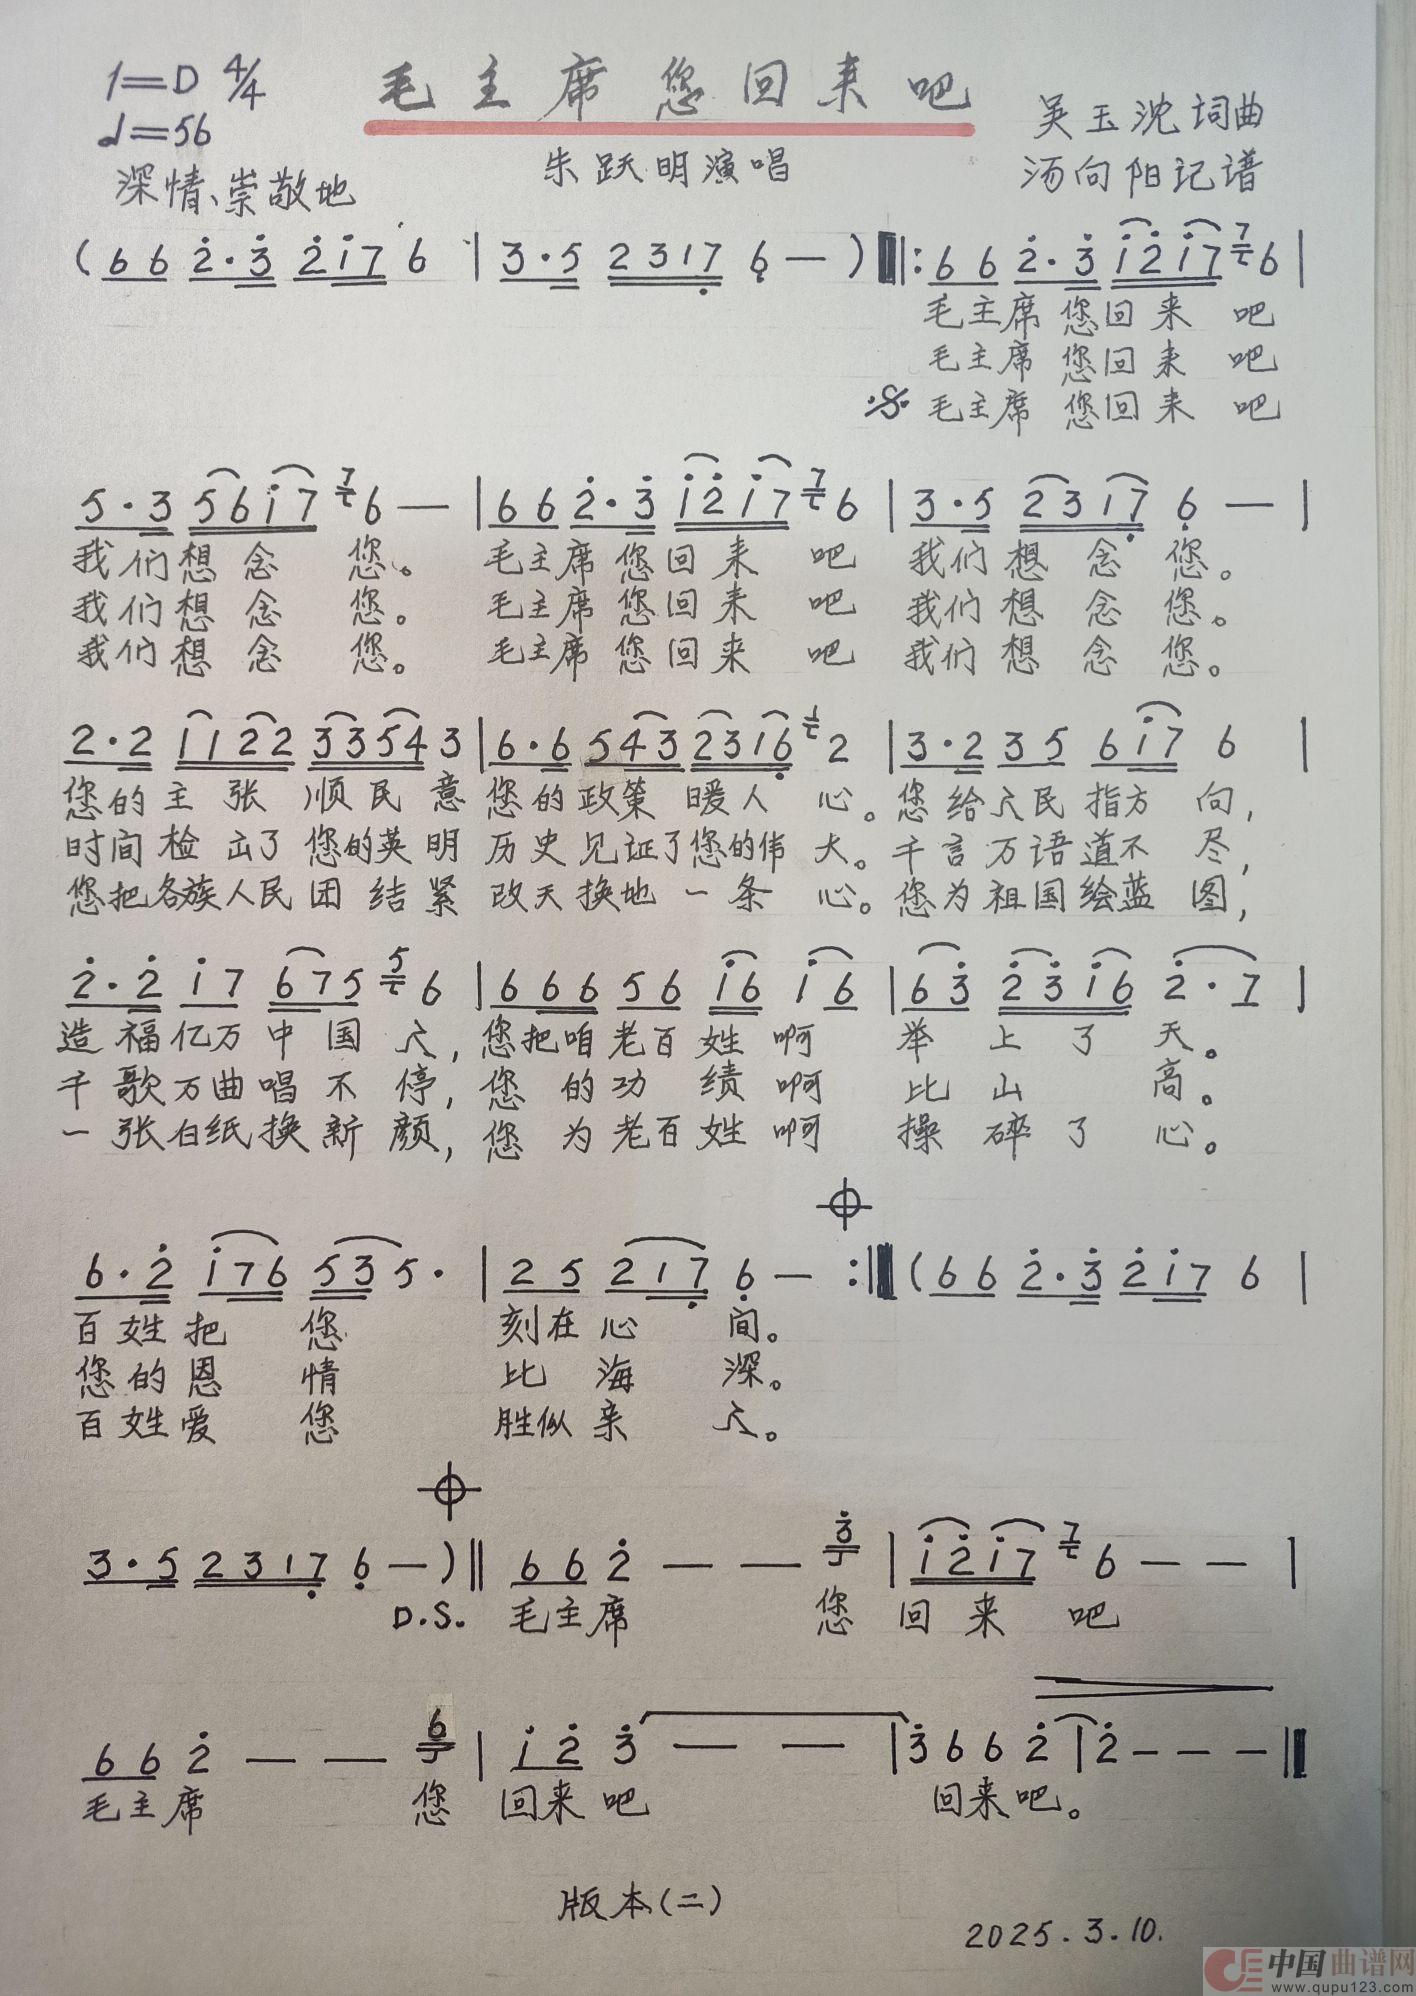 1=D 4/4
毛主席您回来吧
吴玉沈词曲
♩=56
朱跃明演唱
汤向阳记谱
深情、崇敬地
(6 6 2·3 2 1 7 6 | 3·5 2 3 1 7 6 — ) ‖: 6 6 2·3 1 2 1 7 7 6 |
毛主席您回来吧
毛主席您回来吧
毛主席您回来吧
5·3 5 6 1 7 7 6 — | 6 6 2·3 1 2 1 7 7 6 | 3·5 2 3 1 7 6 — |
我们想念您。 毛主席您回来吧 我们想念您。
我们想念您。 毛主席您回来吧 我们想念您。
我们想念您。 毛主席您回来吧 我们想念您。
2·2 1 1 2 2 3 3 5 4 3 | 6·6 5 4 3 2 3 1 6 1 2 | 3·2 3 5 6 1 7 6 |
您的主张顺民意 您的政策暖人心。您给人民指方向,
时间检出了您的英明 历史见证了您的伟大。千言万语道不尽,
您把各族人民团结紧 改天换地一条心。您为祖国绘蓝图,
2·2 1 7 6 7 5 5 6 | 6 6 6 5 6 1 6 1 6 | 6 3 2 3 1 6 2·7 |
造福亿万中国人, 您把咱老百姓啊 举上了天。
千歌万曲唱不停, 您的功绩啊 比山高。
一张白纸换新颜, 您为老百姓啊 操碎了心。
6·2 1 7 6 5 3 5· | 2 5 2 1 7 6 — :‖ (6 6 2·3 2 1 7 6 |
百姓把您 刻在心间。
您的恩情 比海深。
百姓爱您 胜似亲人。
3·5 2 3 1 7 6 — ) ‖ 6 6 2 — — 3 | 1 2 1 7 7 6 — — |
D.S. 毛主席 您 回来吧
6 6 2 — — 6 | 1 2 3 — — | 3 6 6 2 | 2 — — — ‖
毛主席 您 回来吧 回来吧。
版本(二)
2025.3.10.
中国曲谱网
www.qupu123.com